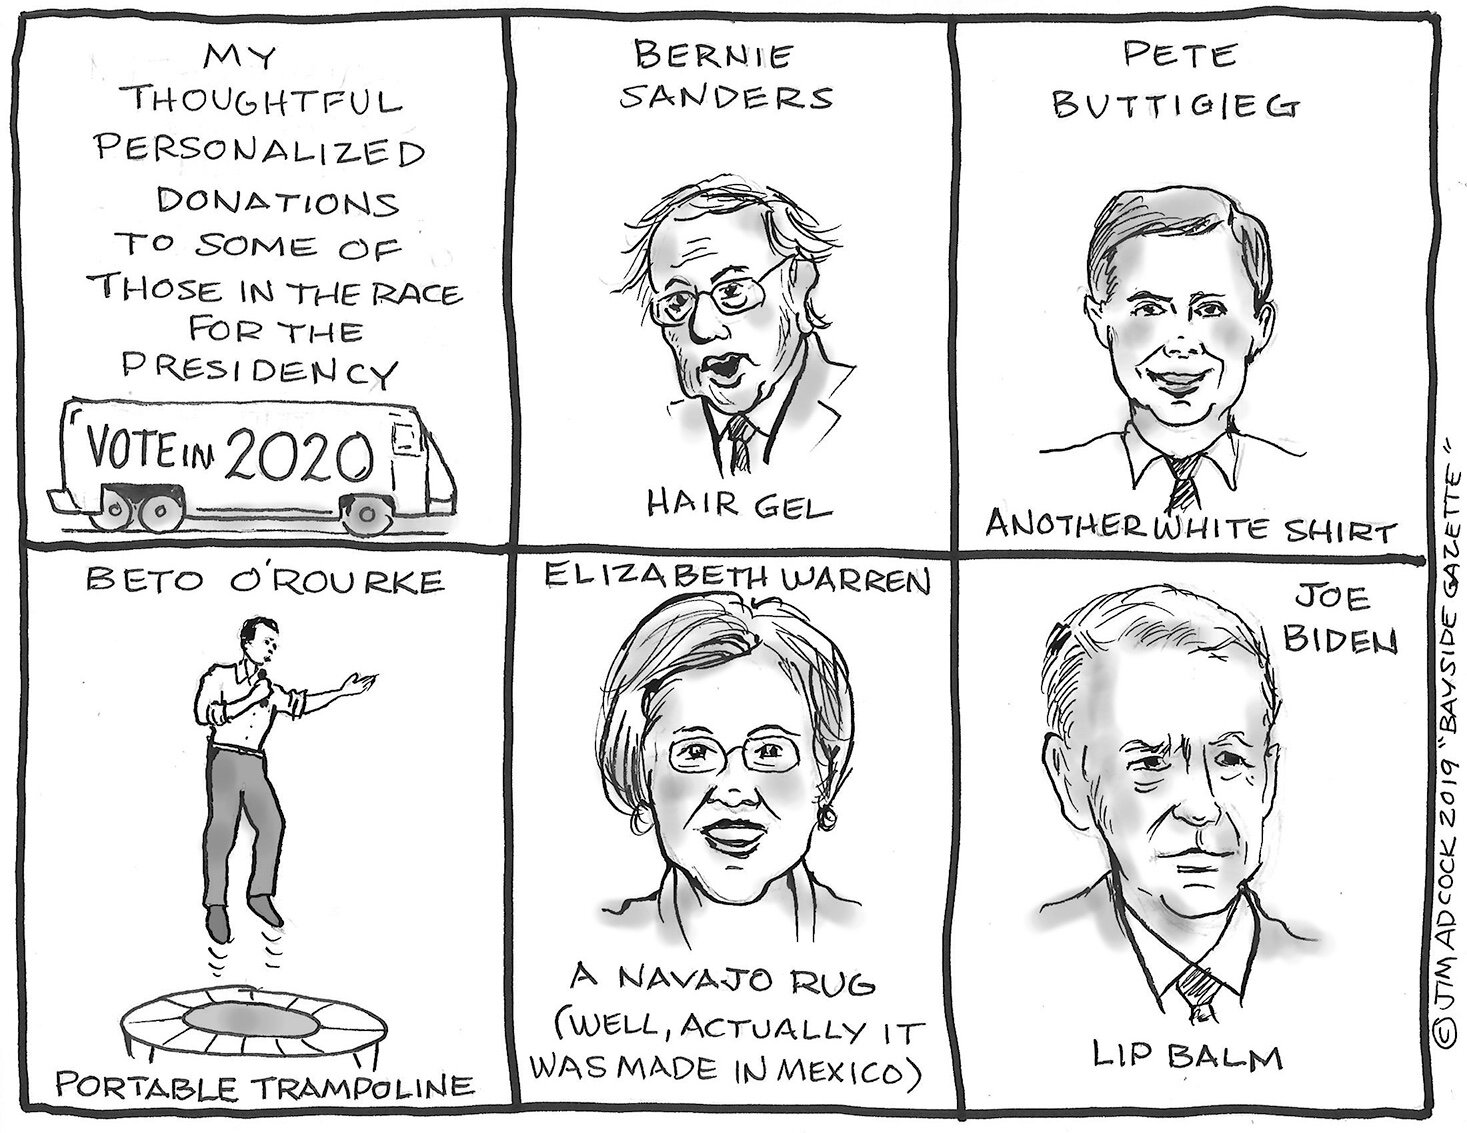 MY
THOUGHTFUL
PERSONALIZED
DONATIONS
TO SOME OF
THOSE IN THE RACE
FOR THE
PRESIDENCY
VOTE IN 2020
BERNIE
SANDERS
HAIR GEL
PETE
BUTTIGIEG
ANOTHER WHITE SHIRT
BETO O'ROURKE
PORTABLE TRAMPOLINE
ELIZABETH WARREN
A NAVAJO RUG
(WELL, ACTUALLY IT
WAS MADE IN MEXICO)
JOE
BIDEN
LIP BALM
© JIM ADCOCK 2019 "BAYSIDE GAZETTE"